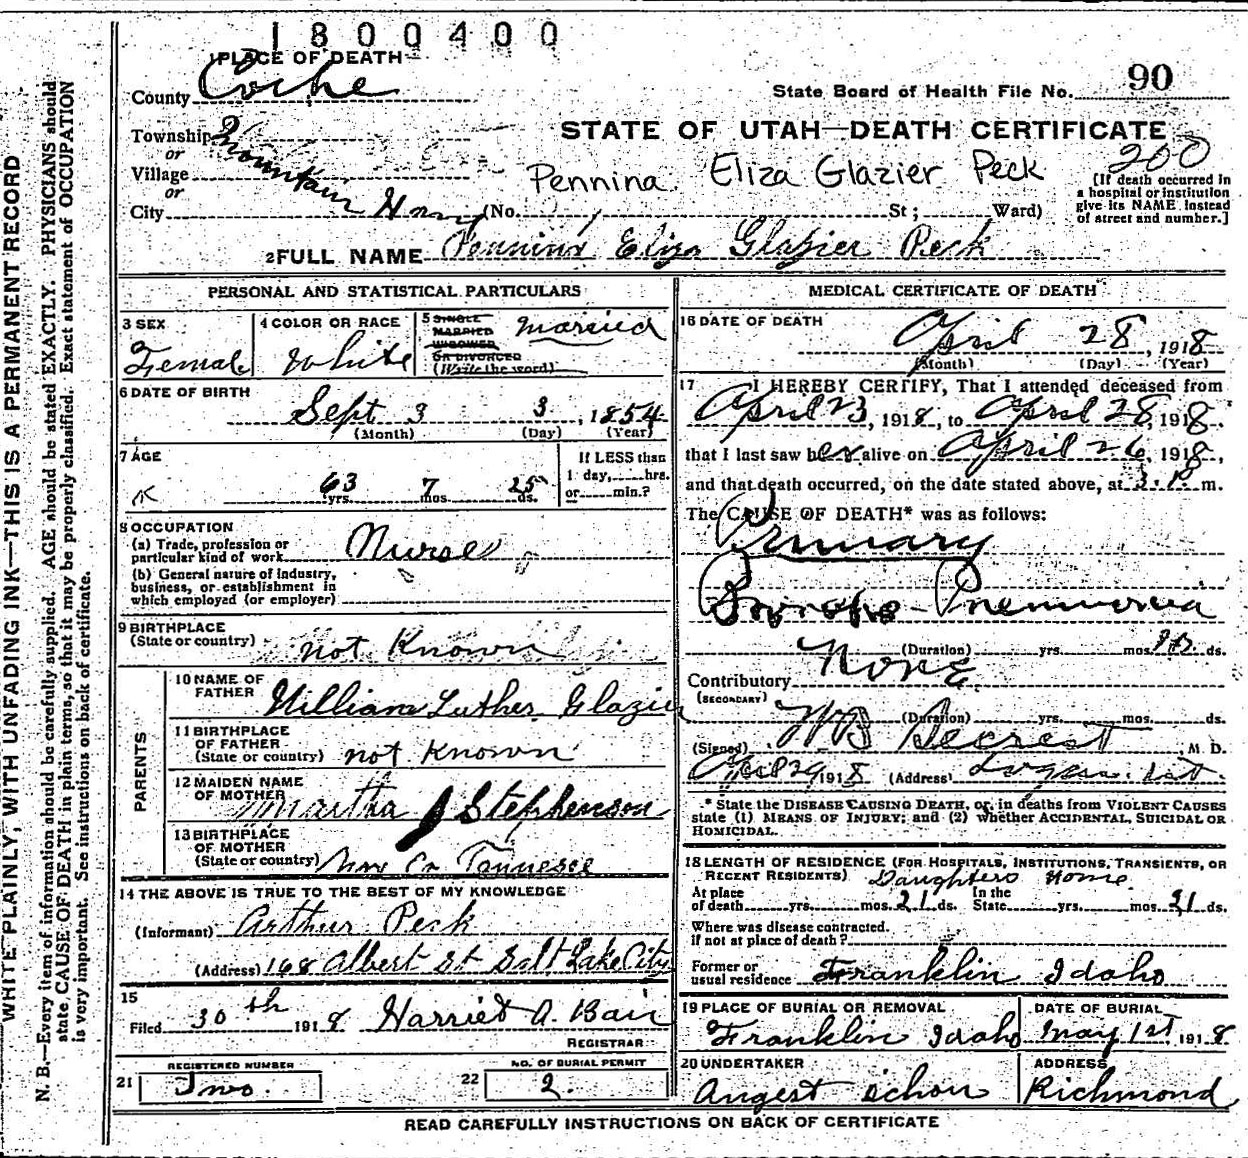 1 8 0 0 4 0 0
1 PLACE OF DEATH
County Cache
State Board of Health File No. 90
Township
or
Village
or
City
Mountain Home
STATE OF UTAH—DEATH CERTIFICATE
Pennina Eliza Glazier Peck
200
(No. St; Ward)
[If death occurred in a hospital or institution give its NAME instead of street and number.]
2 FULL NAME Pennina Eliza Glazier Peck
PERSONAL AND STATISTICAL PARTICULARS
3 SEX Female
4 COLOR OR RACE White
5 SINGLE MARRIED WIDOWED OR DIVORCED (Write the word) Married
6 DATE OF BIRTH
Sept 3 3, 1854
(Month) (Day) (Year)
7 AGE
63 yrs. 7 mos 25 ds.
If LESS than 1 day, hrs. or min.?
8 OCCUPATION
(a) Trade, profession or particular kind of work Nurse
(b) General nature of industry, business, or establishment in which employed (or employer)
9 BIRTHPLACE (State or country) not Known
PARENTS
10 NAME OF FATHER William Luther Glazier
11 BIRTHPLACE OF FATHER (State or country) not Known
12 MAIDEN NAME OF MOTHER Martha J Stephenson
13 BIRTHPLACE OF MOTHER (State or country) Tennesee
14 THE ABOVE IS TRUE TO THE BEST OF MY KNOWLEDGE
(Informant) Arthur Peck
(Address) 168 Albert St Salt Lake City
15
Filed 30th 1918 Harriet A. Bair
REGISTRAR
REGISTERED NUMBER
21 Two.
NO. OF BURIAL PERMIT
22 2.
MEDICAL CERTIFICATE OF DEATH
16 DATE OF DEATH
April 28, 1918
(Month) (Day) (Year)
17 I HEREBY CERTIFY, That I attended deceased from
April 23, 1918, to April 28, 1918.
that I last saw her alive on April 26, 1918,
and that death occurred, on the date stated above, at m.
The CAUSE OF DEATH* was as follows:
Primary
Broncho-Pnemuonia
(Duration) yrs. mos. ds.
Contributory None
(SECONDARY)
(Duration) yrs. mos. ds.
(Signed) , M. D.
April 29 1918 (Address) Logan. Ut.
* State the DISEASE CAUSING DEATH, or, in deaths from VIOLENT CAUSES
state (1) MEANS OF INJURY; and (2) whether ACCIDENTAL, SUICIDAL OR
HOMICIDAL.
18 LENGTH OF RESIDENCE (FOR HOSPITALS, INSTITUTIONS, TRANSIENTS, OR
RECENT RESIDENTS) Daughters Home
At place of death yrs. mos. 21 ds. In the State yrs. mos. 21 ds.
Where was disease contracted, if not at place of death?
Former or usual residence Franklin Idaho
19 PLACE OF BURIAL OR REMOVAL
Franklin Idaho
DATE OF BURIAL
May 1st 1918
20 UNDERTAKER
Angest Schon
ADDRESS
Richmond
READ CAREFULLY INSTRUCTIONS ON BACK OF CERTIFICATE
WRITE PLAINLY, WITH UNFADING INK—THIS IS A PERMANENT RECORD
N. B.—Every item of information should be carefully supplied. AGE should be stated EXACTLY. PHYSICIANS should
state CAUSE OF DEATH in plain terms, so that it may be properly classified. Exact statement of OCCUPATION
is very important. See instructions on back of certificate.